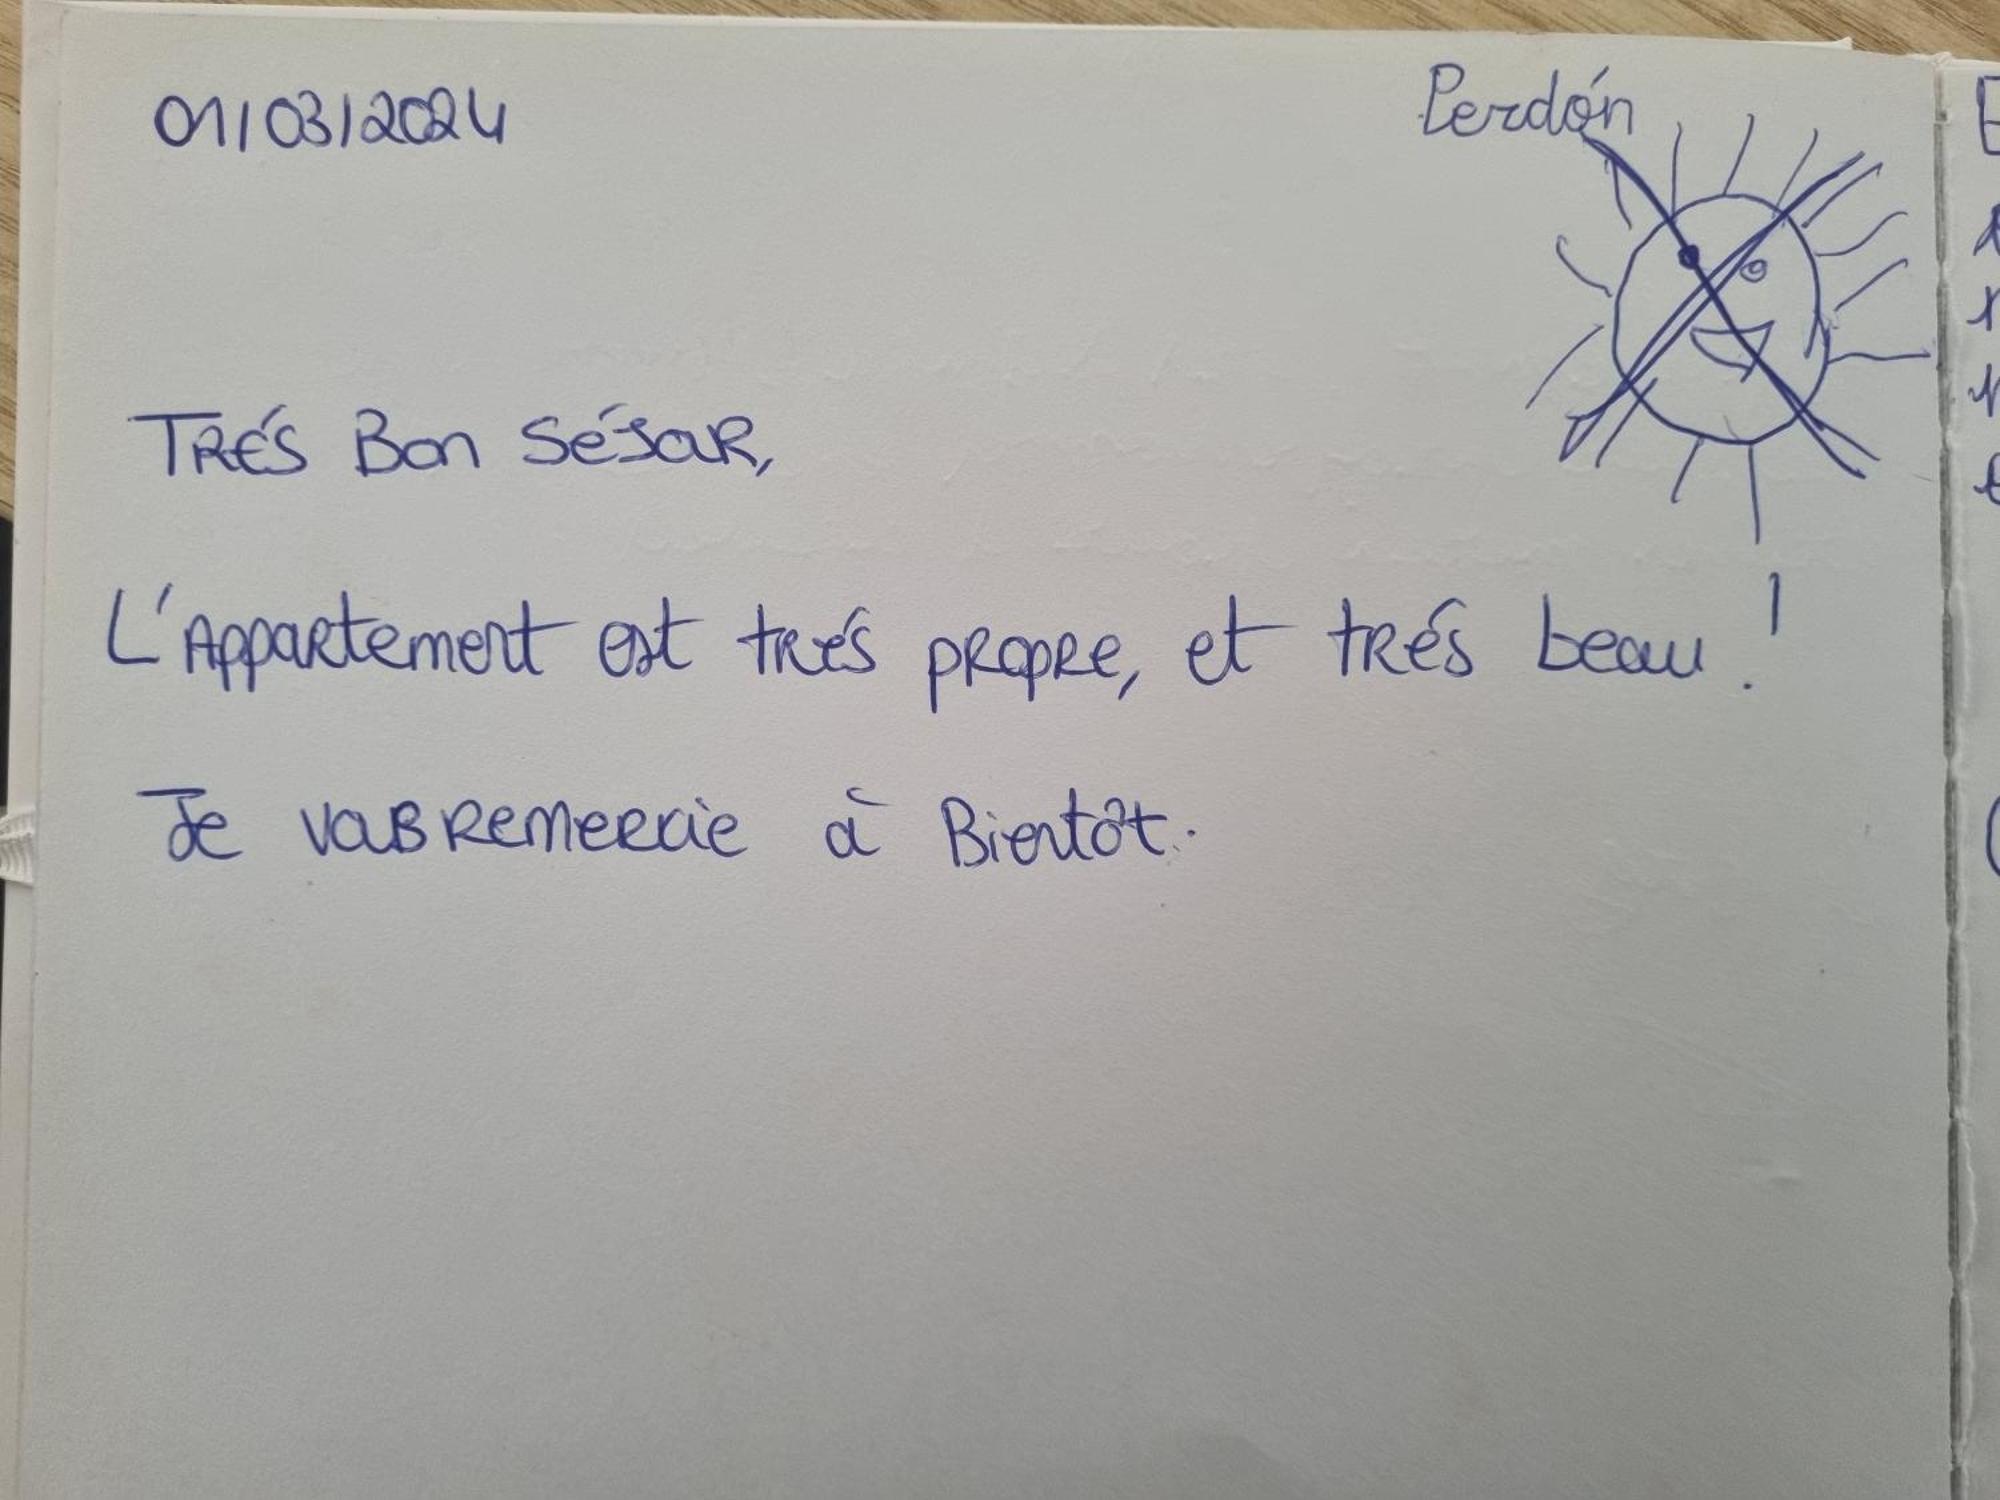 01/03/2024
Perdón
TRÉS Bon SÉJOUR,
L'Appartement est trés propre, et trés beau !
Je vous remercie à Bientôt.